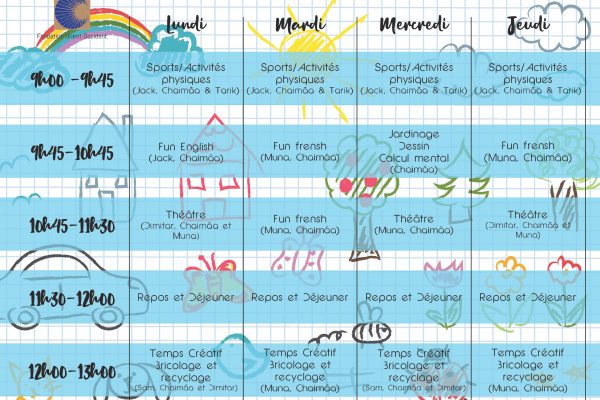 Fondation Orient Occident
Lundi Mardi Mercredi Jeudi
9h00 -9h45
Sports/Activités
physiques
(Jack, Chaimâa & Tarik)
Sports/Activités
physiques
(Jack, Chaimâa & Tarik)
Sports/Activités
physiques
(Jack, Chaimâa & Tarik)
Sports/Activités
physiques
(Jack, Chaimâa & Tarik)
9h45-10h45
Fun English
(Jack, Chaimâa)
Fun frensh
(Muna, Chaimâa)
Jardinage
Dessin
Calcul mental
(Chaimâa)
Fun frensh
(Muna, Chaimâa)
10h45-11h30
Théâtre
(Dimitar, Chaimâa et
Muna)
Fun frensh
(Muna, Chaimâa)
Théâtre
(Muna, Chaimâa)
Théâtre
(Dimitar, Chaimâa et
Muna)
11h30-12h00
Repos et Déjeuner
Repos et Déjeuner
Repos et Déjeuner
Repos et Déjeuner
12h00-13h00
Temps Créatif
Bricolage et
recyclage
(Sam, Chaimâa et Dimitar)
Temps Créatif
Bricolage et
recyclage
(Muna, Chaimâa)
Temps Créatif
Bricolage et
recyclage
(Sam, Chaimâa et Dimitar)
Temps Créatif
Bricolage et
recyclage
(Muna, Chaimâa)